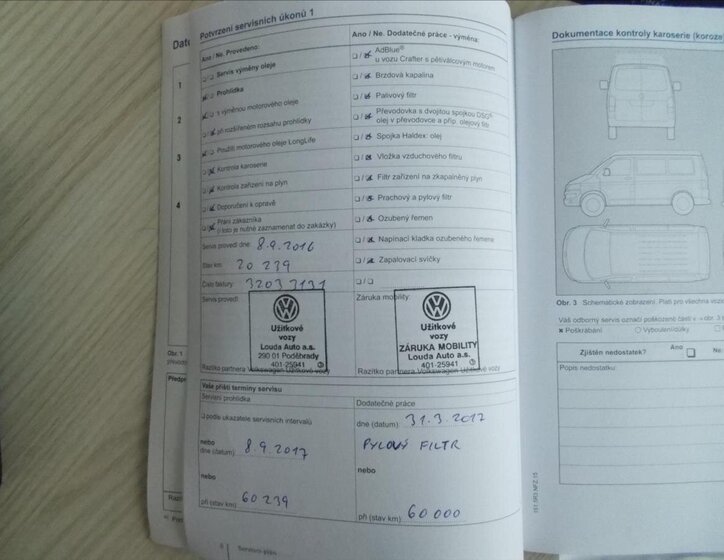 Potvrzení servisních úkonů 1
Ano / Ne. Provedeno:
Servis výměny oleje
Prohlídka
s výměnou motorového oleje
při rozšířeném rozsahu prohlídky
Použití motorového oleje LongLife
Kontrola karoserie
Kontrola zařízení na plyn
Doporučení k opravě
Přání zákazníka
(toto je nutné zaznamenat do zakázky)
Servis provedl dne: 8.9.2016
Stav km: 20 239
Číslo faktury: 3203 3131
Servis provedl
Užitkové
vozy
Louda Auto a.s.
290 01 Poděbrady
401-25941
Razítko partnera Volkswagen Užitkové vozy
Ano / Ne. Dodatečné práce - výměna:
AdBlue®
u vozu Crafter s pětiválcovým motorem
Brzdová kapalina
Palivový filtr
Převodovka s dvojitou spojkou DSG®
olej v převodovce a příp. olejový filtr
Spojka Haldex: olej
Vložka vzduchového filtru
Filtr zařízení na zkapalněný plyn
Prachový a pylový filtr
Ozubený řemen
Napínací kladka ozubeného řemene
Zapalovací svíčky
Záruka mobility:
Užitkové
vozy
ZÁRUKA MOBILITY
Louda Auto a.s.
401-25941
Razítko partnera Volkswagen Užitkové vozy
Vaše příští termíny servisu
Servisní prohlídka
podle ukazatele servisních intervalů
nebo
dne (datum) 8.9.2017
nebo
při (stav km) 60 239
Dodatečné práce
dne (datum) 31.3.2017
PYLOVÝ FILTR
nebo
při (stav km) 60 000
Servisní plán
1
2
3
4
Obr. 1
Dokumentace kontroly karoserie (koroze
Obr. 3 Schematické zobrazení. Platí pro všechna voz
Váš odborný servis označí poškozené části v
Poškrábání
Vyboulení/důlky
Zjištěn nedostatek?
Ano
Ne
Popis nedostatku: